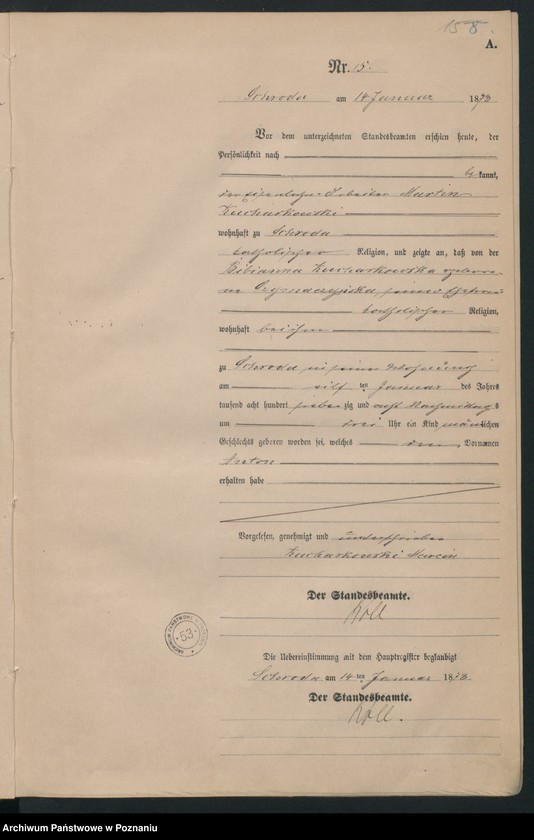 158
A.
Nr. 15.
Schroda am 14 Januar 1878
Vor dem unterzeichneten Standesbeamten erschien heute, der
Persönlichkeit nach
bekannt,
der Arbeiter Martin
Kucharkowski
wohnhaft zu Schroda
katholischer Religion, und zeigte an, daß von der
Bibianna Kucharkowska geborene
seiner Ehefrau
katholischer Religion,
wohnhaft bei ihm
zu Schroda in seiner Wohnung
am elf ten Januar des Jahres
tausend acht hundert siebenzig und acht Nachmittags
um drei Uhr ein Kind männlichen
Geschlechts geboren worden sei, welches den Vornamen
Anton
erhalten habe
Vorgelesen, genehmigt und unterschrieben
Kucharkowski Marcin
Der Standesbeamte.
Roll
Die Uebereinstimmung mit dem Hauptregister beglaubigt
Schroda am 14 ten Januar 1878.
Der Standesbeamte.
Roll.
53
Archiwum Państwowe w Poznaniu